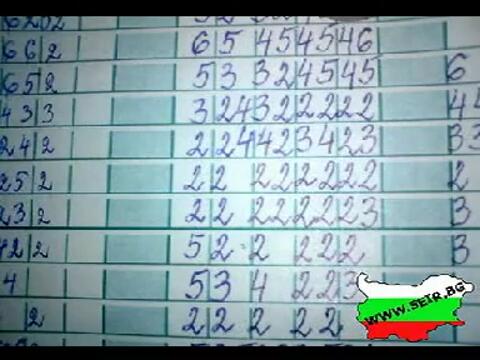 662 65 454546
652 53 324545 6
433 3243222222 44
242 224423423 33
252 22 222222 2
232 22 2222223 3
422 52 2 222 3
4 53 4 223
2 22 2 22
WWW.SEIR.BG